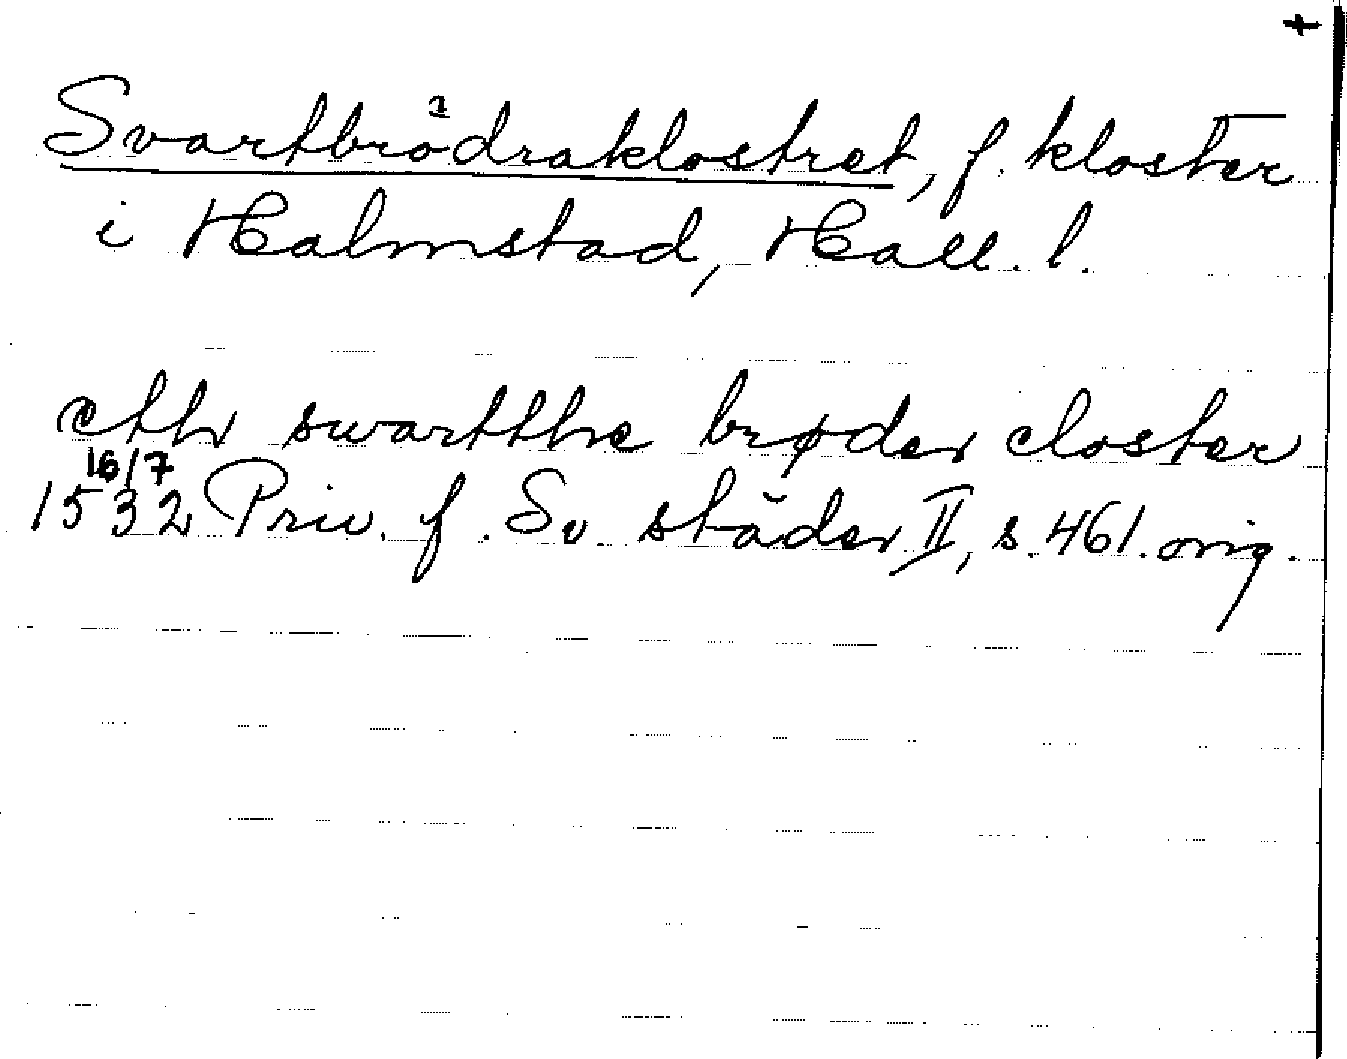 †
Svartbrödraklostret, f. kloster
i Halmstad, Hall. l.
etth swartthe brøder closter
16/7
1532 Priv. f. Sv. städer II, s. 461. orig.